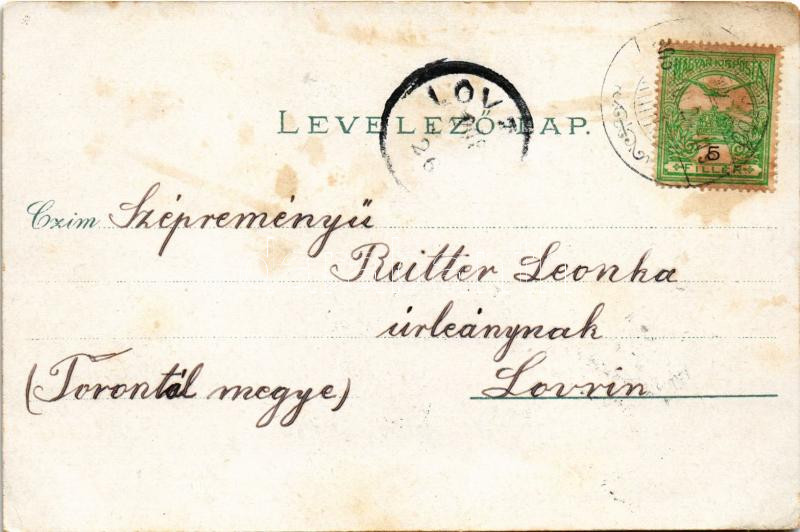 MAGYAR KIR. POSTA
5
FILLÉR
LOV
LEVELEZŐ-LAP.
Czim Szépreményű
Reitter Leonka
úrleánynak
(Torontál megye) Lovrin